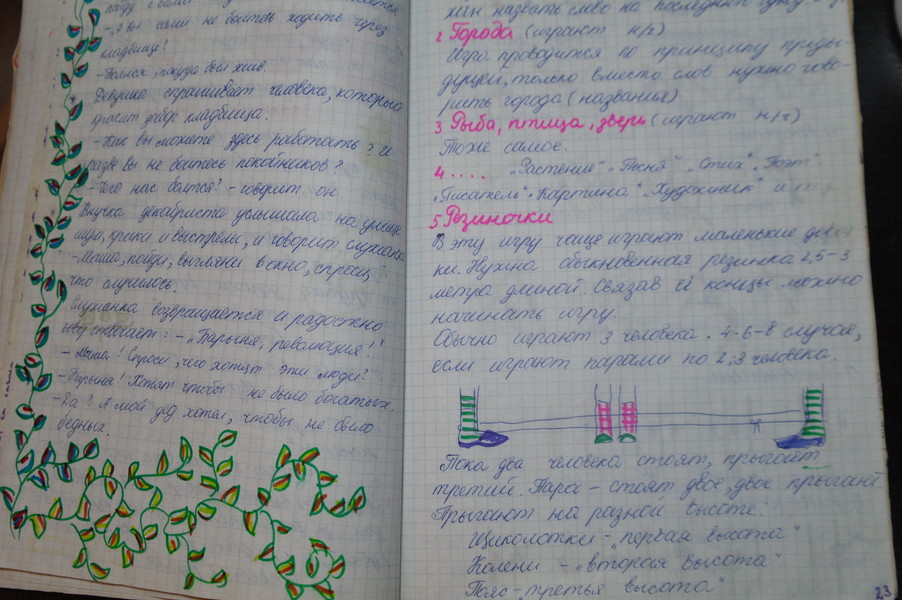 - А вы сами не боитесь ходить через
кладбище?
- Боялся, покуда был жив.
Девушка спрашивает человека, который
кладбища:
- Как вы можете здесь работать? И
разве вы не боитесь покойников?
- Чего нас боятся? - говорит он
Внучка декабриста услышала на улице
шум, крики и выстрелы, и говорит служанке
- Маша, пойди, выгляни в окно, спроси,
что случилось.
Служанка возвращается и радостно
- "Барыня, революция!"
- Маша! Спроси, чего хотят эти люди?
- Барыня! Хотят чтобы не было богатых.
- Да? А мой дед хотел, чтобы не было
бедных.
назвать слово на последнюю букву
2 Города (играют н/г)
Игра проводится по принципу преды-
дущей, только вместо слов нужно гово-
рить города (названия)
3 Рыба, птица, зверь (играют н/г)
Тоже самое.
4.... "Растение" "Песня" "Стих" "Поэт"
"Писатель" "Картина" "Художник" и т
5 Резиночки
В эту игру чаще играют маленькие
ки. Нужна обыкновенная резинка 2,5-3
метра длиной. Связав её концы можно
начинать игру.
Обычно играют 3 человека. 4-6-8 случае,
если играют парами по 2,3 человека.
Пока два человека стоят, прыгает
третий. Пара - стоят двое, двое прыгают
Прыгают на разной высоте:
Щиколотки - "первая высота"
Колени - "вторая высота"
Пояс - "третья высота"
23